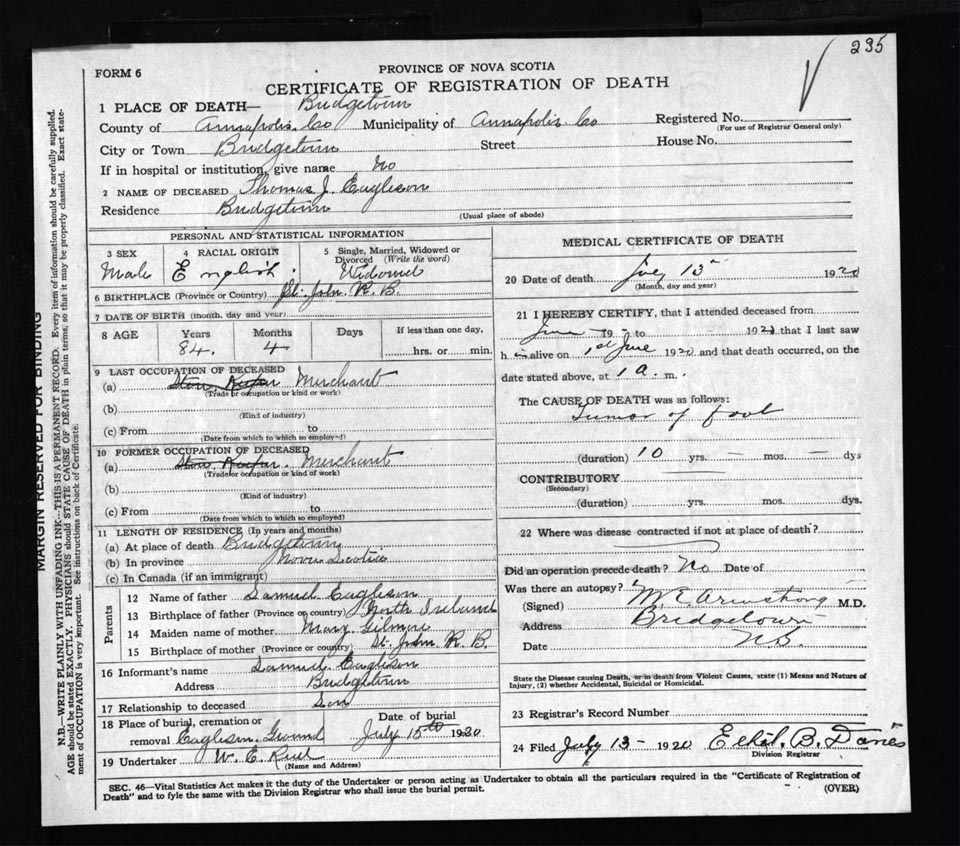 235
FORM 6
PROVINCE OF NOVA SCOTIA
CERTIFICATE OF REGISTRATION OF DEATH
1 PLACE OF DEATH— Bridgetown
County of Annapolis Co Municipality of Annapolis Co Registered No.
(For use of Registrar General only)
City or Town Bridgetown Street House No.
If in hospital or institution, give name No
2 NAME OF DECEASED Thomas J. Eagleson
Residence Bridgetown
(Usual place of abode)
PERSONAL AND STATISTICAL INFORMATION
3 SEX Male
4 RACIAL ORIGIN English
5 Single, Married, Widowed or Divorced (Write the word) Widowed
6 BIRTHPLACE (Province or Country) St. John N. B.
7 DATE OF BIRTH (month, day and year)
8 AGE Years Months Days If less than one day,
84. 4 hrs. or min.
9 LAST OCCUPATION OF DECEASED
(a) Store Keeper Merchant
(Trade or occupation or kind or work)
(b)
(Kind of industry)
(c) From to
(Date from which to which so employed)
10 FORMER OCCUPATION OF DECEASED
(a) Store Keeper. Merchant
(Trade or occupation or kind of work)
(b)
(Kind of industry)
(c) From to
(Date from which to which so employed)
11 LENGTH OF RESIDENCE (In years and months)
(a) At place of death Bridgetown
(b) In province Nova Scotia
(c) In Canada (if an immigrant)
Parents
12 Name of father Samuel Eagleson
13 Birthplace of father (Province or country) North Ireland
14 Maiden name of mother Mary Gilmore
15 Birthplace of mother (Province or country) St. John N. B.
16 Informant's name Samuel Eagleson
Address Bridgetown
17 Relationship to deceased Son
18 Place of burial, cremation or removal Eagleson Ground
Date of burial July 15th 1920
19 Undertaker W. E. Reed
(Name and Address)
MEDICAL CERTIFICATE OF DEATH
20 Date of death July 13th 1920
(Month, day and year)
21 I HEREBY CERTIFY, that I attended deceased from
June 19 to 192 that I last saw
h is alive on 1st June 1920 and that death occurred, on the
date stated above, at 1 a. m.
The CAUSE OF DEATH was as follows:
Tumor of foot
(duration) 10 yrs. — mos. — dys
CONTRIBUTORY
(Secondary)
(duration) yrs. mos. dys.
22 Where was disease contracted if not at place of death?
Did an operation precede death? No Date of
Was there an autopsy?
(Signed) M. E. Armstrong M.D.
Address Bridgetown
Date N.S.
State the Disease causing Death, or in death from Violent Causes, state (1) Means and Nature of
Injury, (2) whether Accidental, Suicidal or Homicidal.
23 Registrar's Record Number
24 Filed July 13- 1920
Division Registrar
SEC. 46—Vital Statistics Act makes it the duty of the Undertaker or person acting as Undertaker to obtain all the particulars required in the "Certificate of Registration of
Death" and to fyle the same with the Division Registrar who shall issue the burial permit.
(OVER)
MARGIN RESERVED FOR BINDING
N.B.—WRITE PLAINLY WITH UNFADING INK—THIS IS A PERMANENT RECORD. Every item of information should be carefully supplied.
AGE should be stated EXACTLY. PHYSICIANS should STATE CAUSE OF DEATH in plain terms, so that it may be properly classified. Exact state-
ment of OCCUPATION is very important. See instructions on back of Certificate.